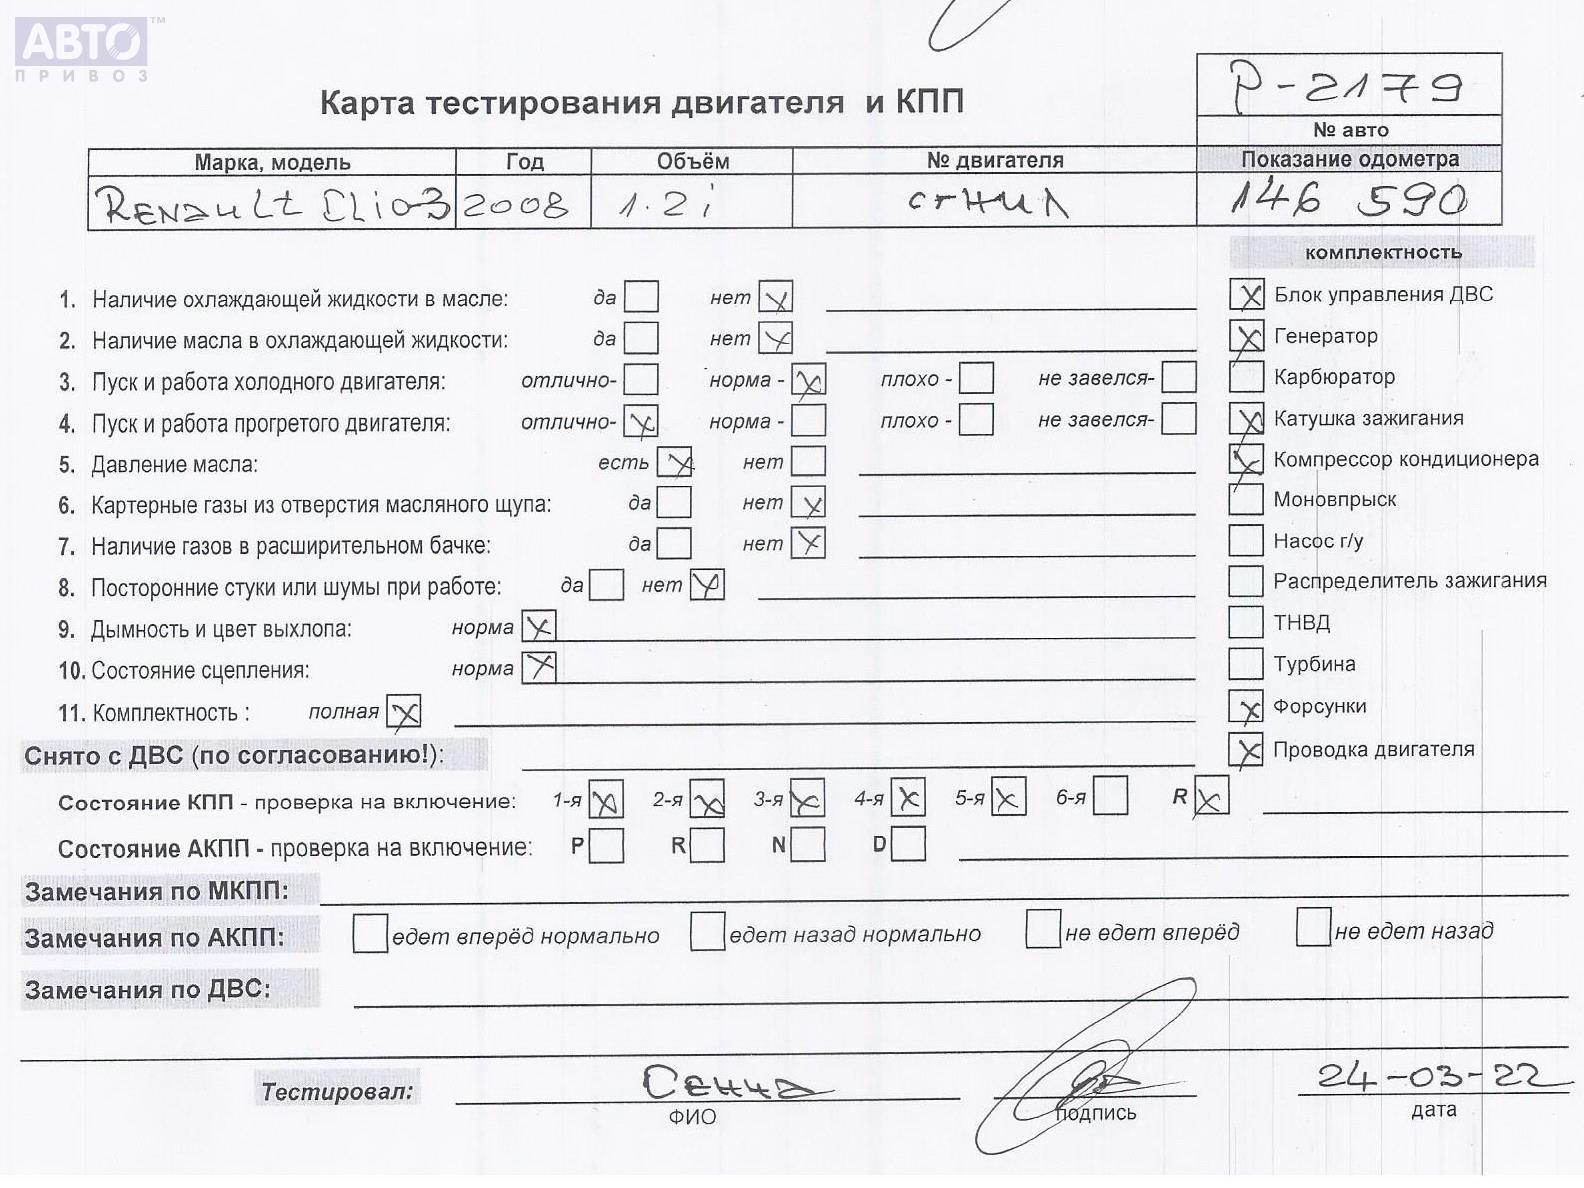 АВТО ™
ПРИВОЗ
Карта тестирования двигателя и КПП
Р-2179
№ авто
Марка, модель Год Объём № двигателя Показание одометра
RENAULT CLIO3 2008 1.2i сгнил 146 590
комплектность
1. Наличие охлаждающей жидкости в масле: да нет
2. Наличие масла в охлаждающей жидкости: да нет
3. Пуск и работа холодного двигателя: отлично- норма - плохо - не завелся-
4. Пуск и работа прогретого двигателя: отлично- норма - плохо - не завелся-
5. Давление масла: есть нет
6. Картерные газы из отверстия масляного щупа: да нет
7. Наличие газов в расширительном бачке: да нет
8. Посторонние стуки или шумы при работе: да нет
9. Дымность и цвет выхлопа: норма
10. Состояние сцепления: норма
11. Комплектность : полная
Блок управления ДВС
Генератор
Карбюратор
Катушка зажигания
Компрессор кондиционера
Моновпрыск
Насос г/у
Распределитель зажигания
ТНВД
Турбина
Форсунки
Проводка двигателя
Снято с ДВС (по согласованию!):
Состояние КПП - проверка на включение: 1-я 2-я 3-я 4-я 5-я 6-я R
Состояние АКПП - проверка на включение: P R N D
Замечания по МКПП:
Замечания по АКПП: едет вперёд нормально едет назад нормально не едет вперёд не едет назад
Замечания по ДВС:
Тестировал: Сенча 24-03-22
ФИО подпись дата